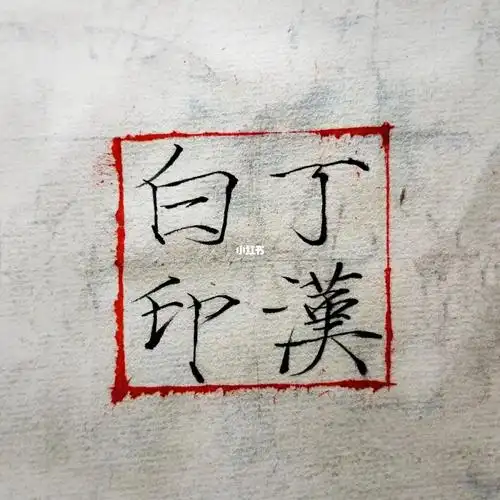 丁漢
白印
小红书